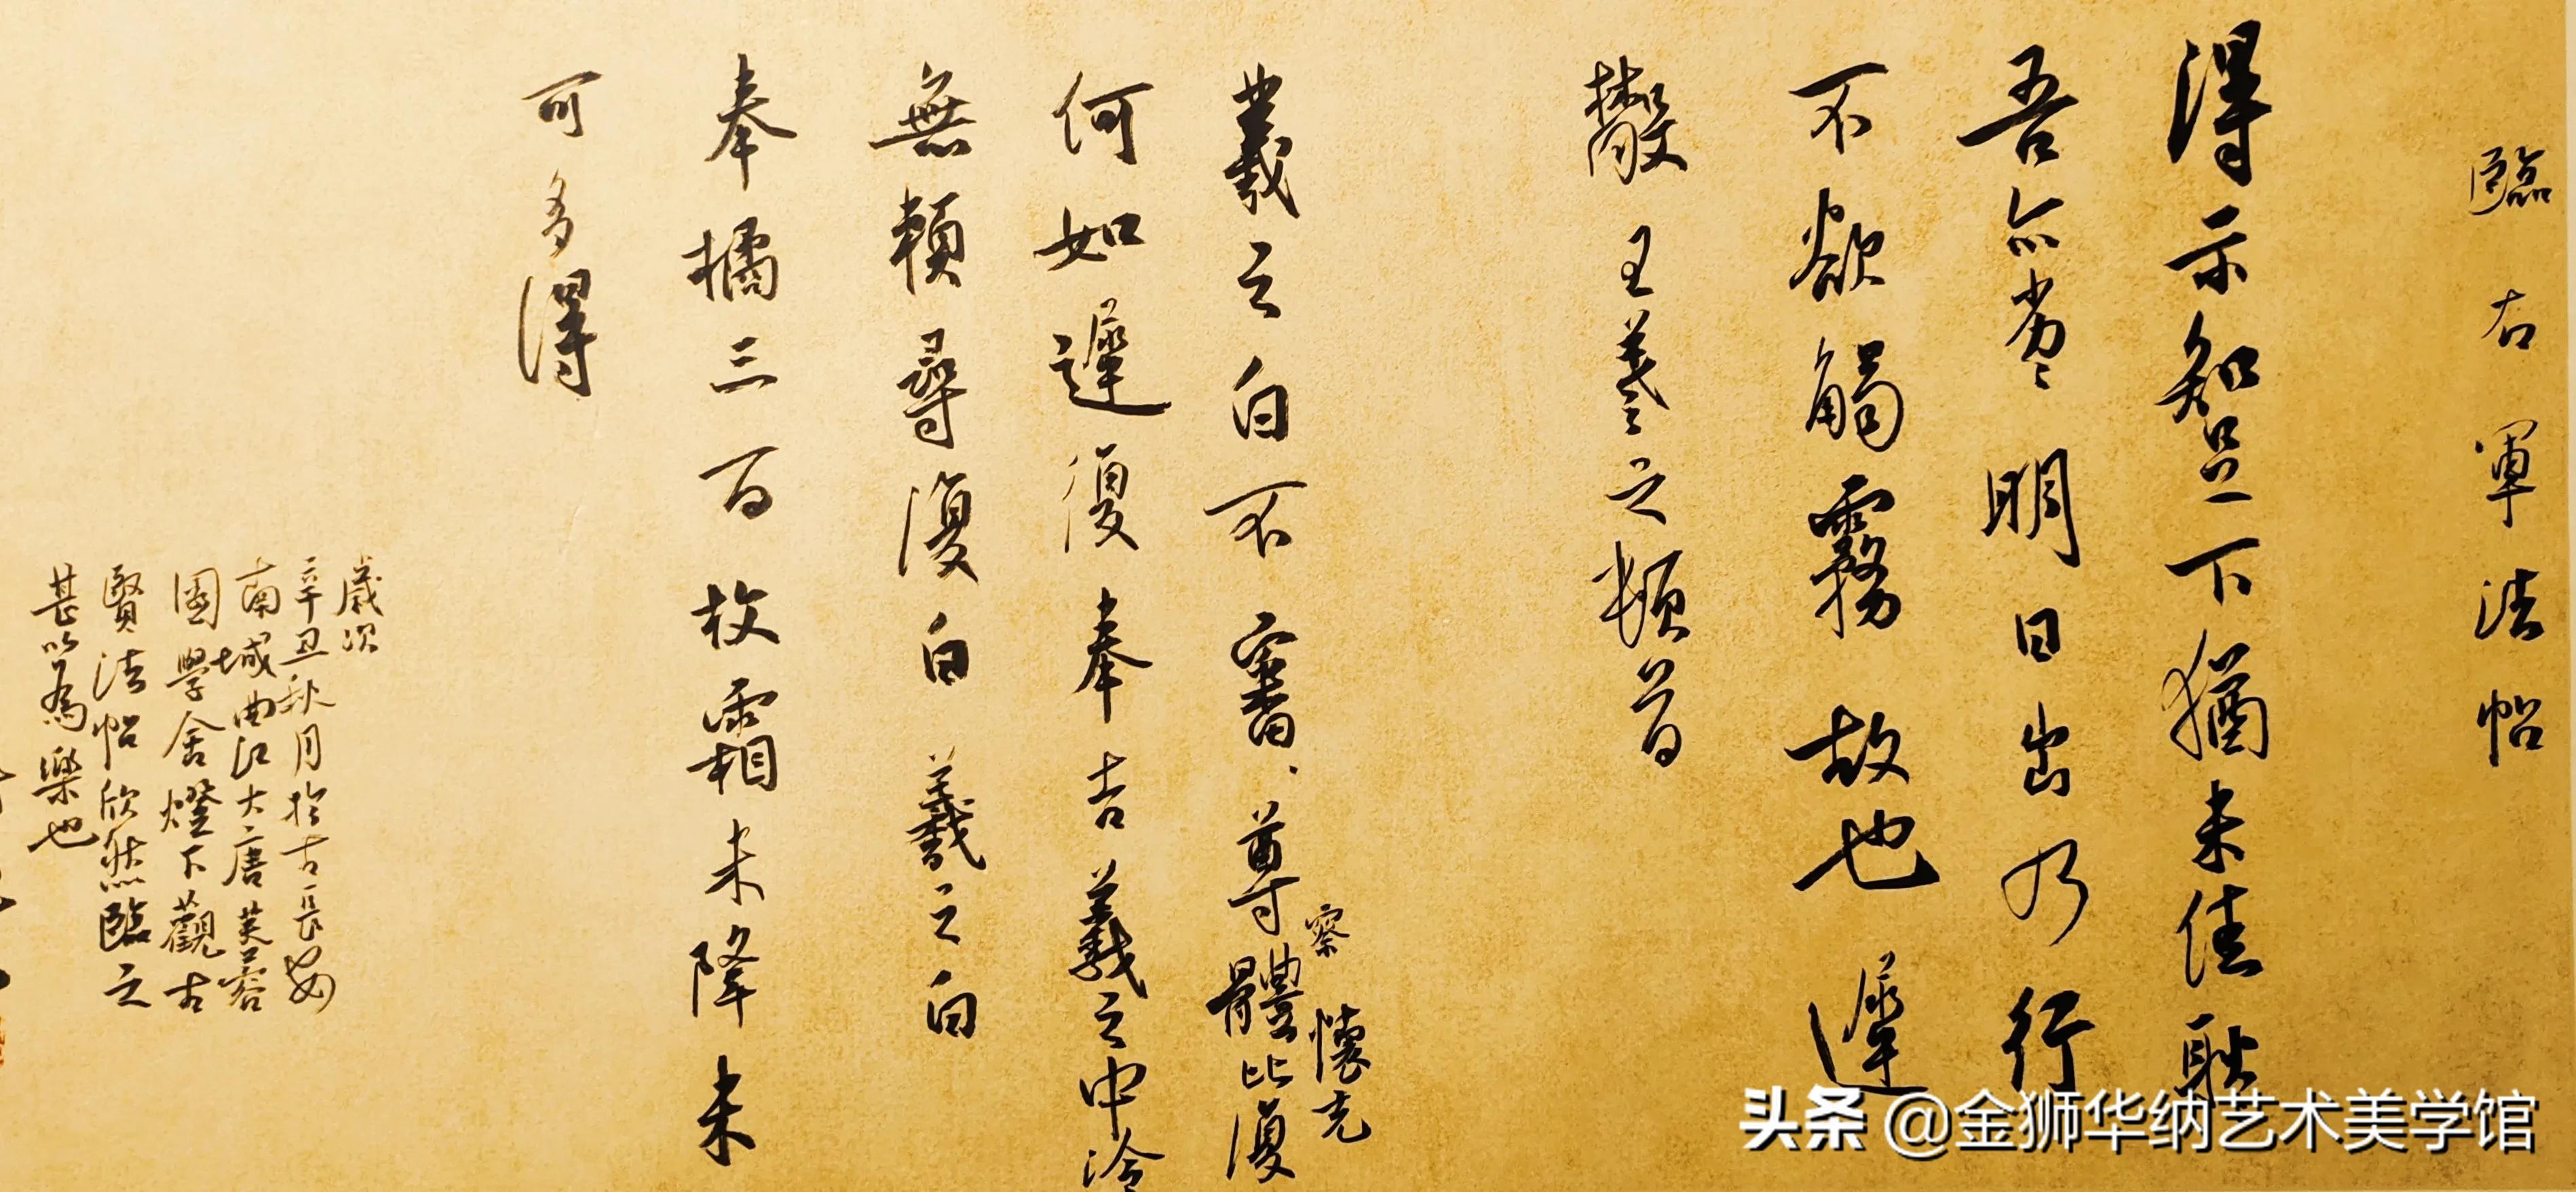 臨右軍法帖
得示知足下猶未佳耿
吾亦劣明日出乃行
不欲觸霧故也遲
散王羲之頓首
察懷充
羲之白不審尊體比復
何如遲復奉告羲之中冷
無賴尋復白羲之白
奉橘三百枚霜未降未
可多得
歲次
辛丑秋月於古長安
南城曲江大唐芙蓉
園學舍燈下觀古
賢法帖欣然臨之
甚以為樂也
头条 @金狮华纳艺术美学馆